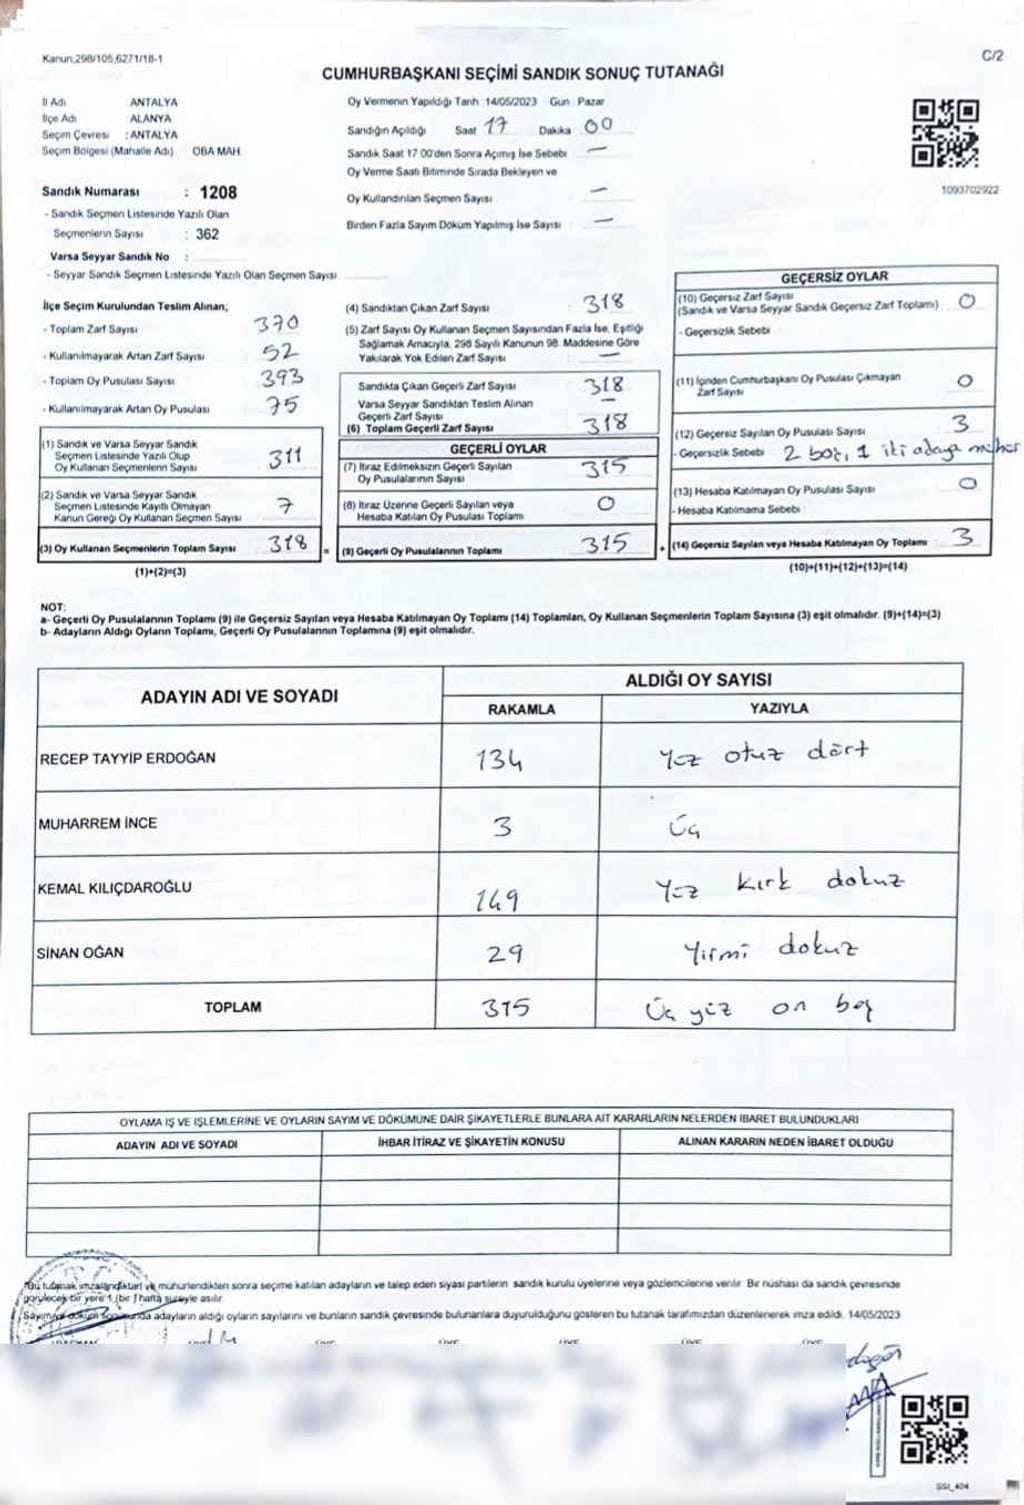 Kanun.298/105,6271/18-1
C/2
CUMHURBAŞKANI SEÇİMİ SANDIK SONUÇ TUTANAĞI
İl Adı ANTALYA
İlçe Adı ALANYA
Seçim Çevresi : ANTALYA
Seçim Bölgesi (Mahalle Adı) OBA MAH.
Oy Vermenin Yapıldığı Tarih 14/05/2023 Gün Pazar
Sandığın Açıldığı Saat 17 Dakika 00
Sandık Saat 17 00'den Sonra Açımış İse Sebebi —
Oy Verme Saati Bitiminde Sırada Bekleyen ve
Oy Kullandırılan Seçmen Sayısı —
Birden Fazla Sayım Döküm Yapılmış İse Sayısı —
1093702922
Sandık Numarası : 1208
- Sandık Seçmen Listesinde Yazılı Olan
Seçmenlerin Sayısı : 362
Varsa Seyyar Sandık No :
- Seyyar Sandık Seçmen Listesinde Yazılı Olan Seçmen Sayısı
İlçe Seçim Kurulundan Teslim Alınan;
- Toplam Zarf Sayısı 370
- Kullanılmayarak Artan Zarf Sayısı 52
- Toplam Oy Pusulası Sayısı 393
- Kullanılmayarak Artan Oy Pusulası 75
(1) Sandık ve Varsa Seyyar Sandık
Seçmen Listesinde Yazılı Olup
Oy Kullanan Seçmenlerin Sayısı 311
(2) Sandık ve Varsa Seyyar Sandık
Seçmen Listesinde Kayıtlı Olmayan
Kanun Gereği Oy Kullanan Seçmen Sayısı 7
(3) Oy Kullanan Seçmenlerin Toplam Sayısı 318 =
(1)+(2)=(3)
(4) Sandıktan Çıkan Zarf Sayısı 318
(5) Zarf Sayısı Oy Kullanan Seçmen Sayısından Fazla İse, Eşitliği
Sağlamak Amacıyla, 298 Sayılı Kanunun 98. Maddesine Göre
Yakılarak Yok Edilen Zarf Sayısı —
Sandıkta Çıkan Geçerli Zarf Sayısı 318
Varsa Seyyar Sandıktan Teslim Alınan
Geçerli Zarf Sayısı —
(6) Toplam Geçerli Zarf Sayısı 318
GEÇERLİ OYLAR
(7) İtiraz Edilmeksizin Geçerli Sayılan
Oy Pusulalarının Sayısı 315
(8) İtiraz Üzerine Geçerli Sayılan veya
Hesaba Katılan Oy Pusulası Toplamı 0
(9) Geçerli Oy Pusulalarının Toplamı 315 +
GEÇERSİZ OYLAR
(10) Geçersiz Zarf Sayısı
(Sandık ve Varsa Seyyar Sandık Geçersiz Zarf Toplamı) 0
- Geçersizlik Sebebi
(11) İçinden Cumhurbaşkanı Oy Pusulası Çıkmayan
Zarf Sayısı 0
(12) Geçersiz Sayılan Oy Pusulası Sayısı 3
- Geçersizlik Sebebi 2 boş, 1 iki adaya mühür
(13) Hesaba Katılmayan Oy Pusulası Sayısı 0
- Hesaba Katılmama Sebebi
(14) Geçersiz Sayılan veya Hesaba Katılmayan Oy Toplamı 3
(10)+(11)+(12)+(13)=(14)
NOT:
a- Geçerli Oy Pusulalarının Toplamı (9) ile Geçersiz Sayılan veya Hesaba Katılmayan Oy Toplamı (14) Toplamları, Oy Kullanan Seçmenlerin Toplam Sayısına (3) eşit olmalıdır. (9)+(14)=(3)
b- Adayların Aldığı Oyların Toplamı, Geçerli Oy Pusulalarının Toplamına (9) eşit olmalıdır.
ADAYIN ADI VE SOYADI
ALDIĞI OY SAYISI
RAKAMLA YAZIYLA
RECEP TAYYİP ERDOĞAN 134 Yüz otuz dört
MUHARREM İNCE 3 Üç
KEMAL KILIÇDAROĞLU 149 Yüz kırk dokuz
SİNAN OĞAN 29 Yirmi dokuz
TOPLAM 315 Üç yüz on beş
OYLAMA İŞ VE İŞLEMLERİNE VE OYLARIN SAYIM VE DÖKÜMÜNE DAİR ŞİKAYETLERLE BUNLARA AİT KARARLARIN NELERDEN İBARET BULUNDUKLARI
ADAYIN ADI VE SOYADI İHBAR İTİRAZ VE ŞİKAYETİN KONUSU ALINAN KARARIN NEDEN İBARET OLDUĞU
Bu tutanak imzalandıktan ve mühürlendikten sonra seçime katılan adayların ve talep eden siyasi partilerin sandık kurulu üyelerine veya gözlemcilerine verilir. Bir nüshası da sandık çevresinde
görülecek bir yere 1 (bir) hafta süreyle asılır.
Sayım ve döküm sonucunda adayların aldığı oyların sayılarını ve bunların sandık çevresinde bulunanlara duyurulduğunu gösteren bu tutanak tarafımızdan düzenlenerek imza edildi. 14/05/2023
GSI_404